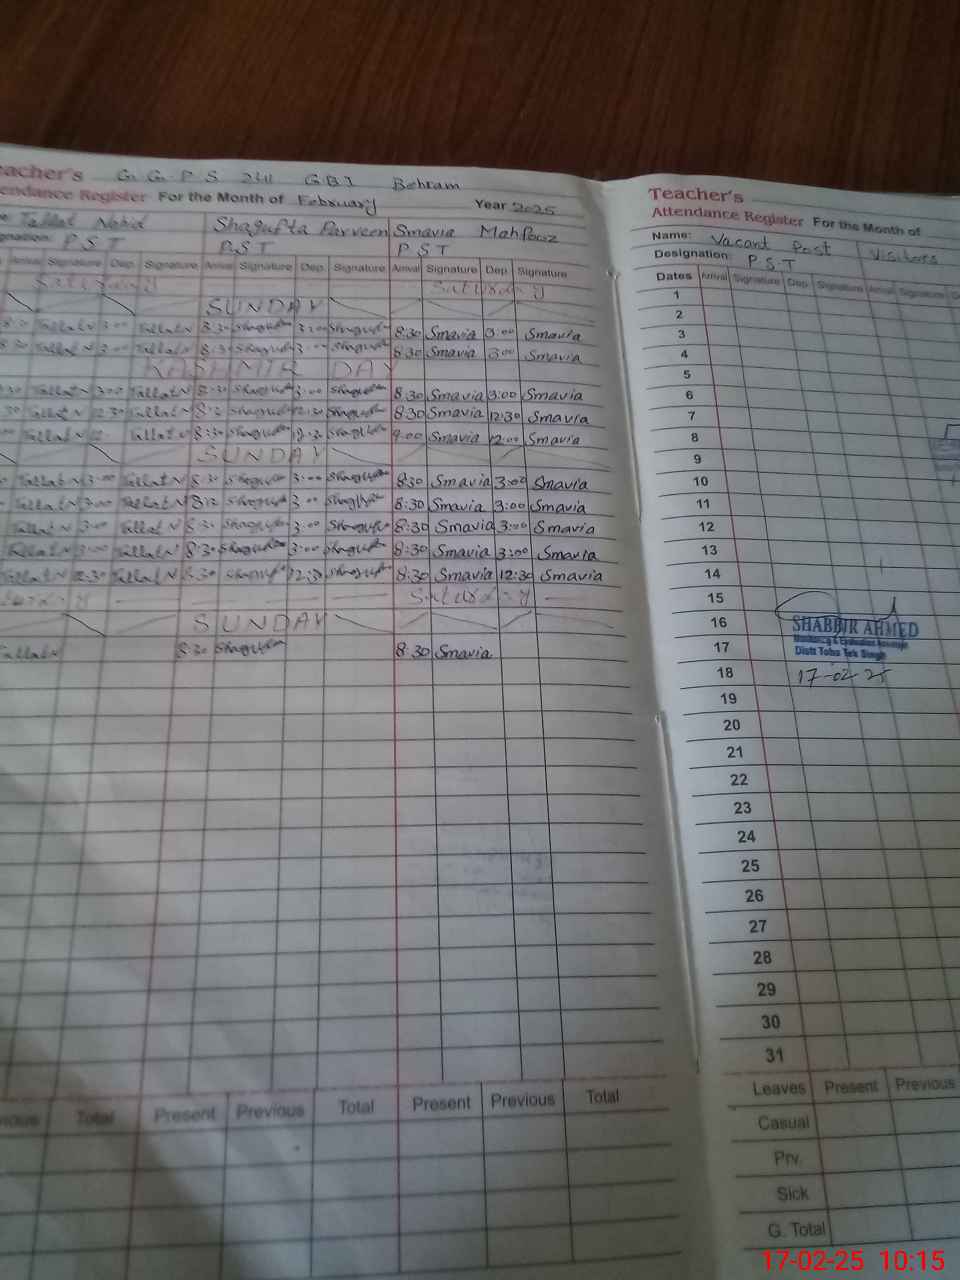 Teacher's G. G. P. S 2411 GBI Behram
Attendance Register For the Month of February Year 2025
Tallat Nahid Shagufta Parveen Smavia Mahfooz
P.S.T P.S.T P.S.T
Arrival Signature Dep. Signature Arrival Signature Dep. Signature Arrival Signature Dep. Signature
Saturday Saturday
SUNDAY
Tallat N 3:00 Tallat N 8:30 3:00 8:30 Smavia 3:00 Smavia
8:30 Tallat N 3:00 Tallat N 8:30 3:00 8:30 Smavia 3:00 Smavia
KASHMIR DAY
Tallat N 3:00 Tallat N 8:30 3:00 8:30 Smavia 3:00 Smavia
Tallat N 12:30 Tallat N 12:30 8:30 Smavia 12:30 Smavia
Tallat N Tallat N 8:30 9:00 Smavia 12:00 Smavia
SUNDAY
Tallat N 3:00 Tallat N 8:30 3:00 8:30 Smavia 3:00 Smavia
Tallat N 3:00 Tallat N 3:00 8:30 Smavia 3:00 Smavia
Tallat N 3:00 Tallat N 8:30 3:00 8:30 Smavia 3:00 Smavia
Tallat N 3:00 Tallat N 8:30 3:00 8:30 Smavia 3:00 Smavia
Tallat N 12:30 Tallat N 8:30 12:30 8:30 Smavia 12:30 Smavia
Saturday
SUNDAY
Tallat N 8:30 8:30 Smavia
Previous Total Present Previous Total Present Previous Total
Teacher's
Attendance Register For the Month of
Name: Vacant Post Visitors
Designation: P.S.T
Dates Arrival Signature Dep. Signature Arrival Signature
1
2
3
4
5
6
7
8
9
10
11
12
13
14
15
16 SHABBIR AHMED
Monitoring & Evaluation
17 Distt Toba Tek Singh
18 17-02-25
19
20
21
22
23
24
25
26
27
28
29
30
31
Leaves Present Previous
Casual
Prv.
Sick
G. Total
17-02-25 10:15